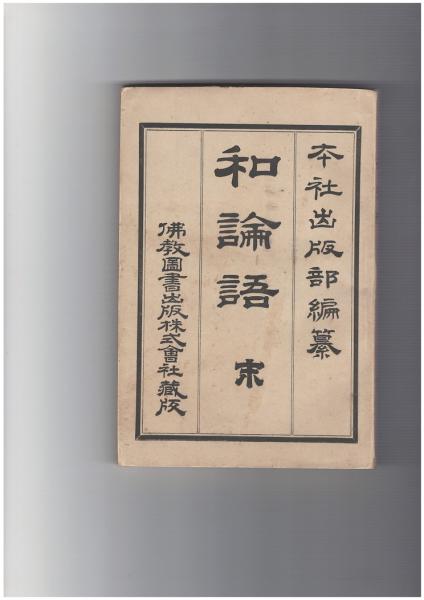 本社出版部編纂
和論語 完
佛教圖書出版株式會社藏版